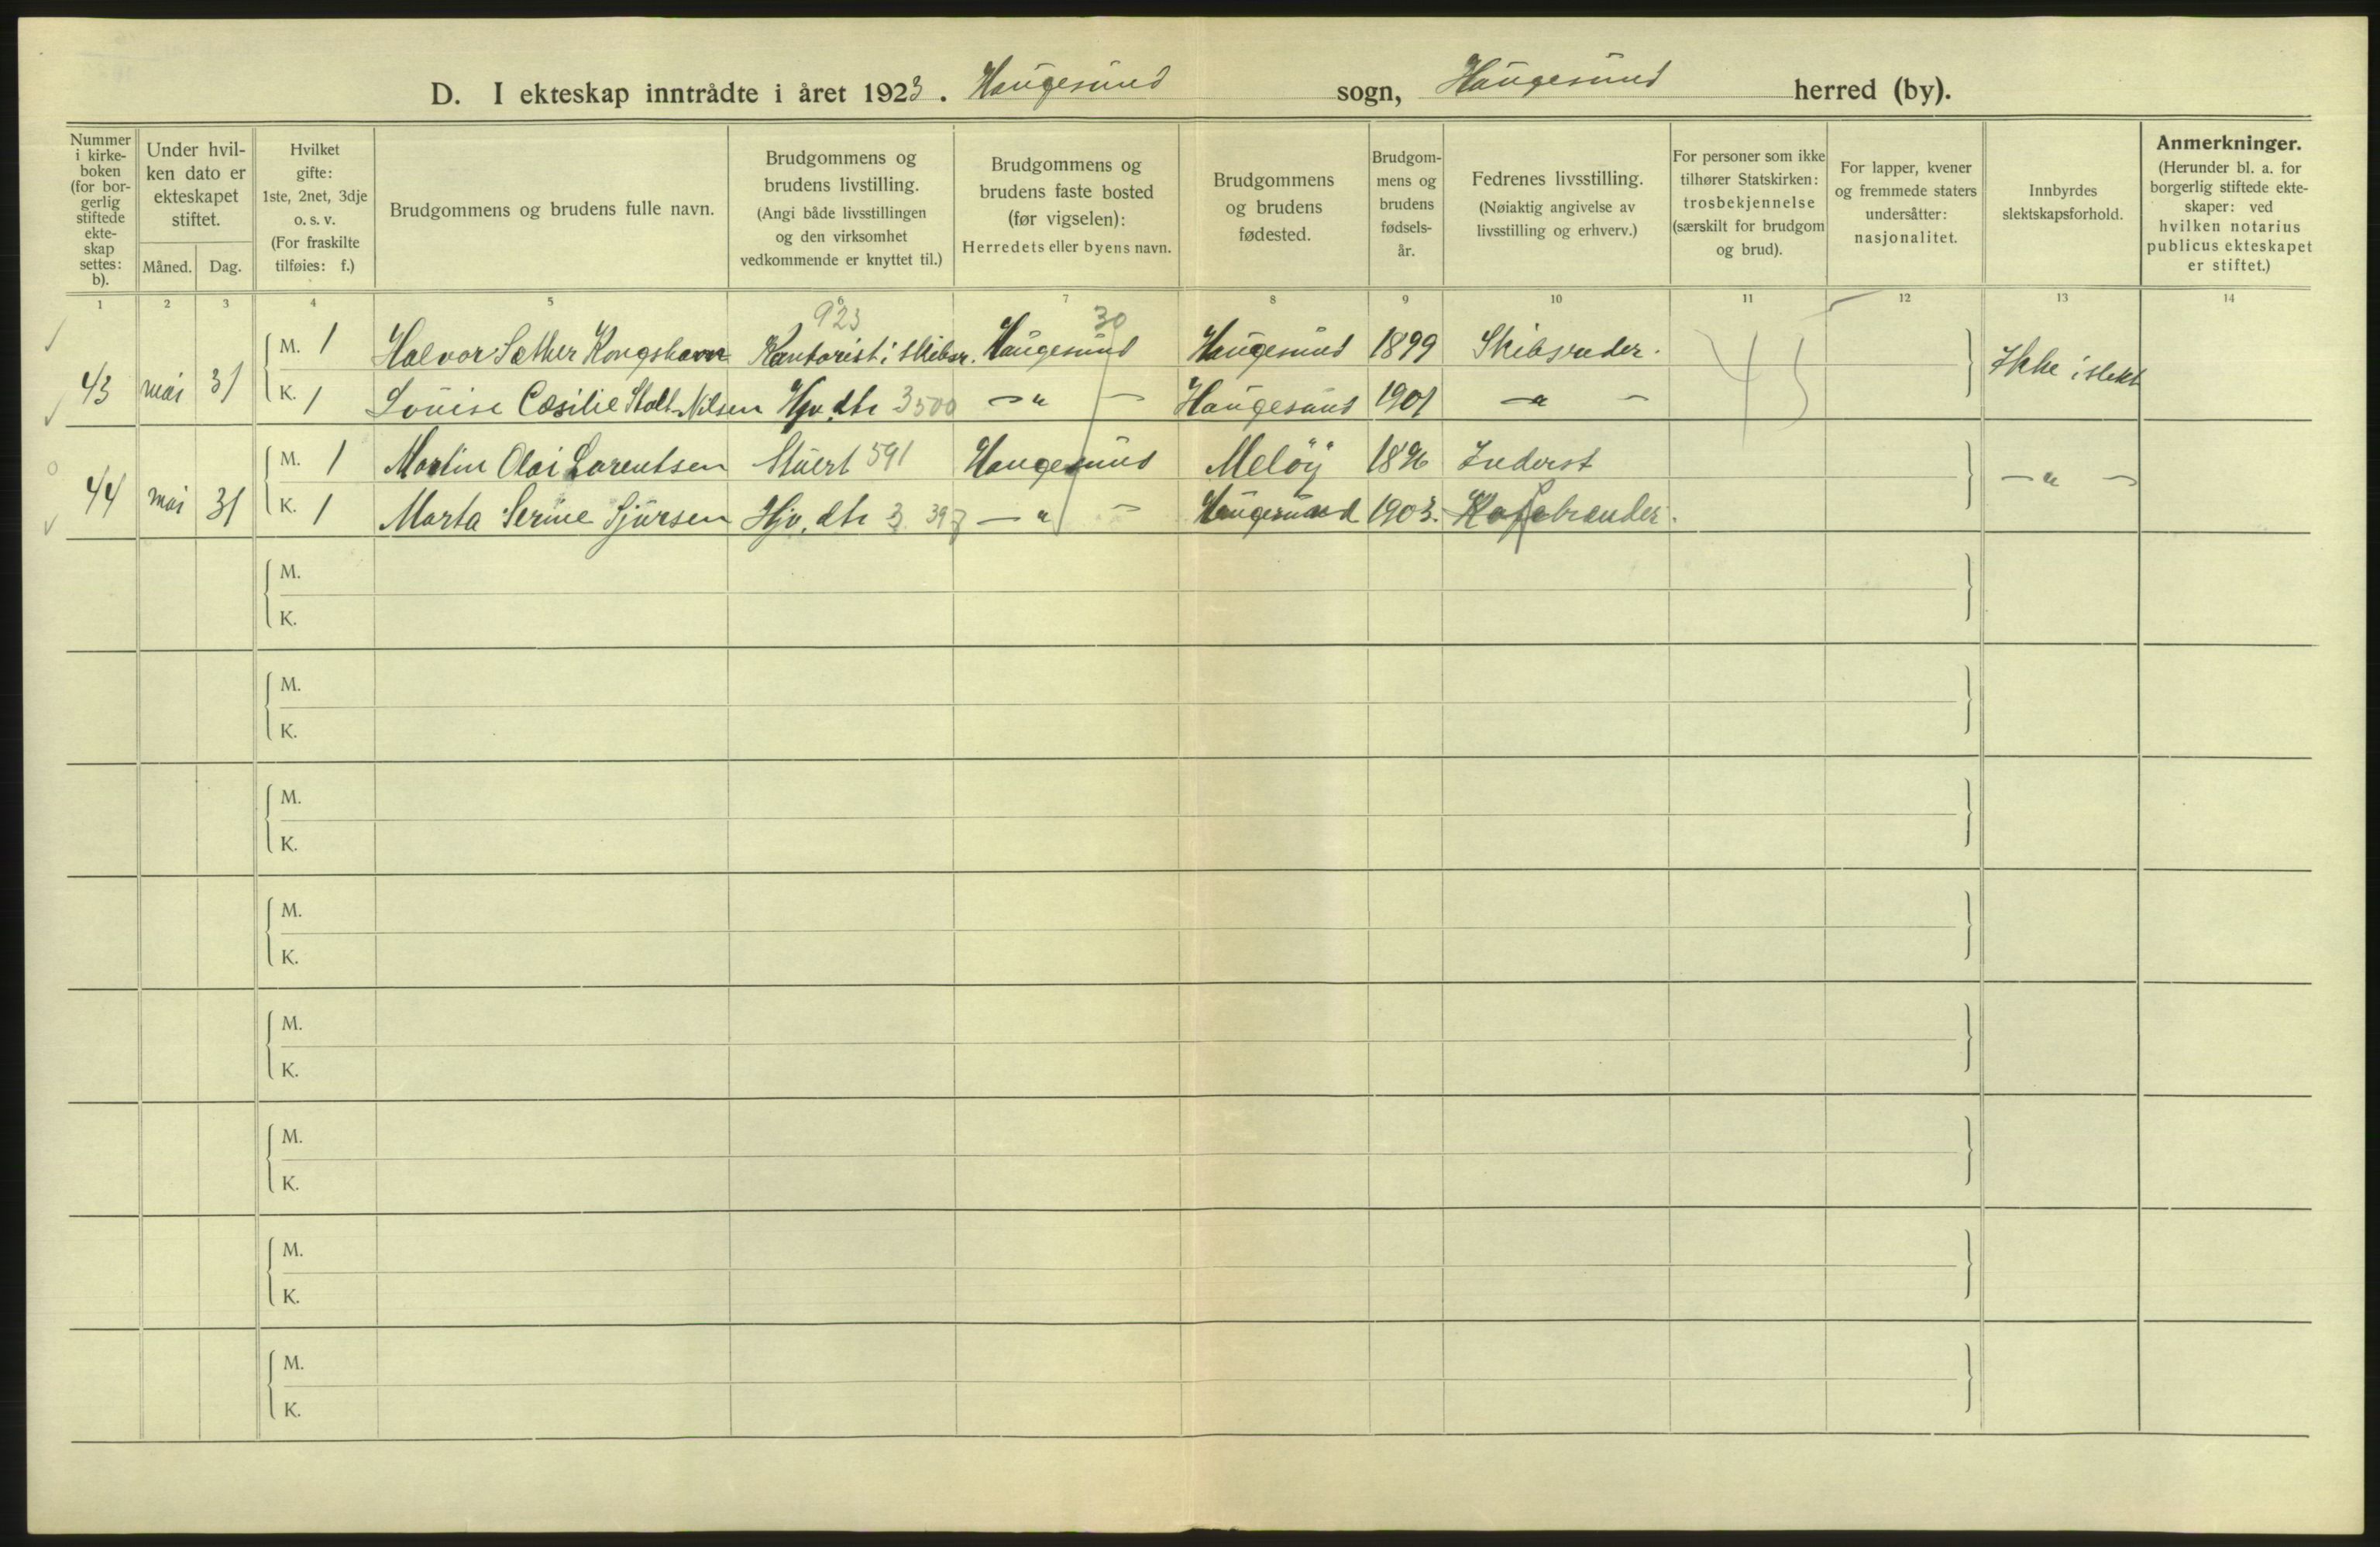 D. I ekteskap inntrådte i året 1923. Haugesund sogn, Haugesund herred (by).
Nummer i kirkeboken (for borgerlig stiftede ekteskap settes: b).
Under hvilken dato er ekteskapet stiftet.
Måned. Dag.
Hvilket gifte: 1ste, 2net, 3dje o. s. v. (For fraskilte tilføies: f.)
Brudgommens og brudens fulle navn.
Brudgommens og brudens livstilling. (Angi både livsstillingen og den virksomhet vedkommende er knyttet til.)
Brudgommens og brudens faste bosted (før vigselen): Herredets eller byens navn.
Brudgommens og brudens fødested.
Brudgommens og brudens fødselsår.
Fedrenes livsstilling. (Nøiaktig angivelse av livsstilling og erhverv.)
For personer som ikke tilhører Statskirken: trosbekjennelse (særskilt for brudgom og brud).
For lapper, kvener og fremmede staters undersåtter: nasjonalitet.
Innbyrdes slektskapsforhold.
Anmerkninger. (Herunder bl. a. for borgerlig stiftede ekteskaper: ved hvilken notarius publicus ekteskapet er stiftet.)
1 2 3 4 5 6 7 8 9 10 11 12 13 14
923 30
43 mai 31 M. 1 Halvor Sæther Kongshavn Kontorist i skibsr. Haugesund Haugesund 1899 Skibsreder. Ikke i slekt
K. 1 Louise Cæsilie Stolt-Nilsen Hjv. dtr 3500 — " — Haugesund 1901 — " —
44 mai 31 M. 1 Martin Olai Larentsen Stuert 591 Haugesund Meløy 1896 Inderst — " —
K. 1 Marta Serine Sjursen Hjv. dtr 3 397 — " — Haugesund 1903. Kaffebrender.
M.
K.
M.
K.
M.
K.
M.
K.
M.
K.
M.
K.
M.
K.
M.
K.